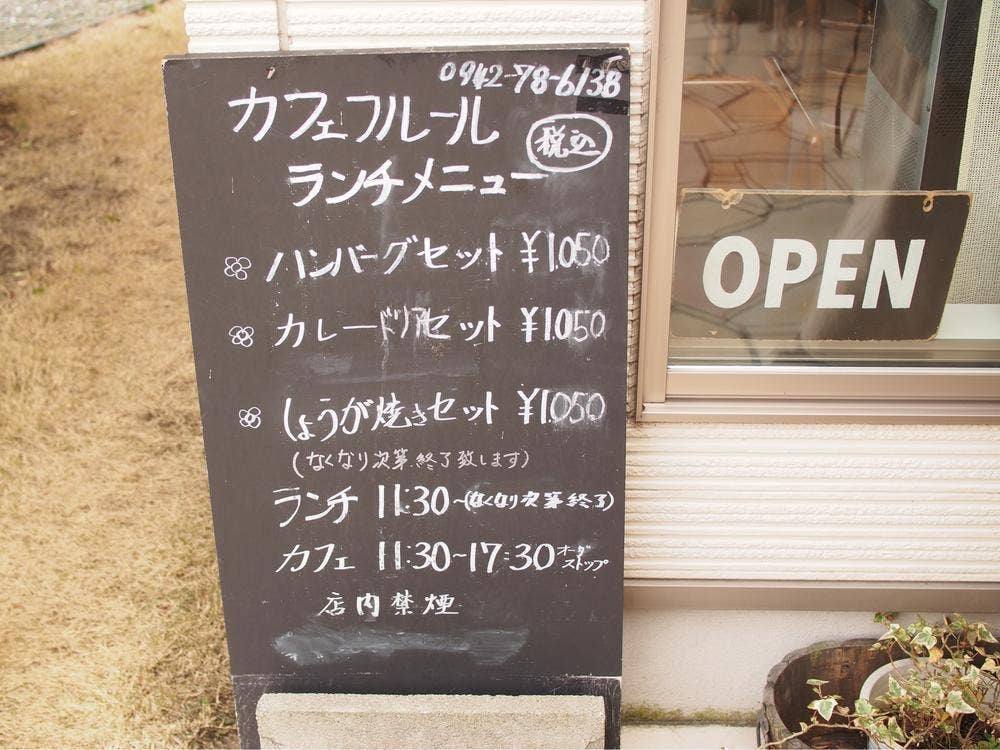 0942-78-6138
カフェフルール
税込
ランチメニュー
ハンバーグセット ¥1.050
カレードリアセット ¥1.050
しょうが焼きセット ¥1.050
(なくなり次第.終了致します)
ランチ 11:30~(なくなり次第終了)
カフェ 11:30~17:30オーダーストップ
店内禁煙
OPEN